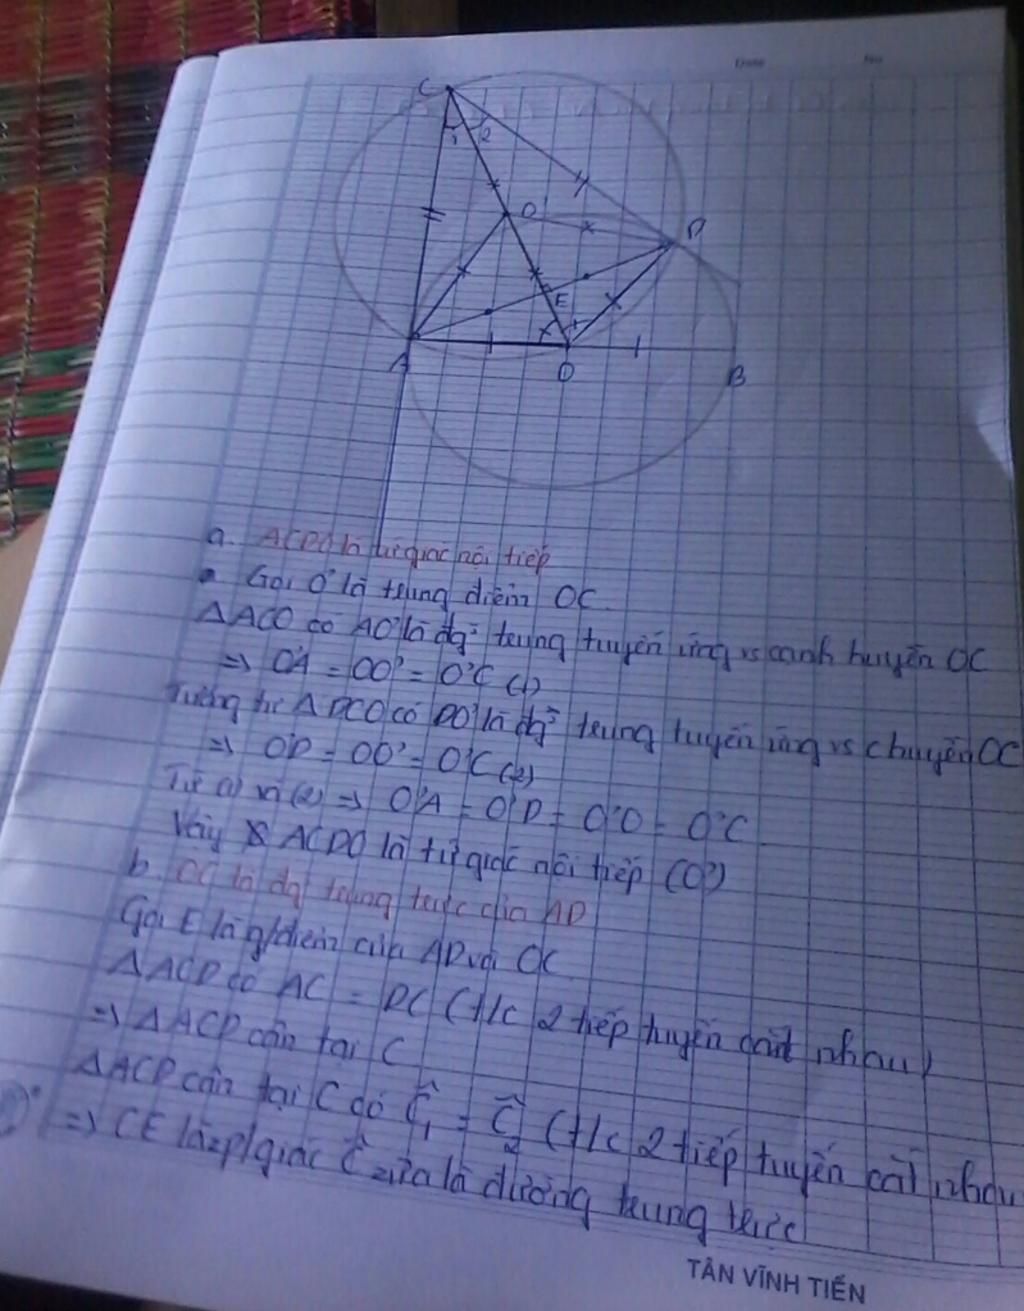 Date No
C
1 2
O'
D
E
A O B
a. ACDO là tứ giác nội tiếp
Gọi O' là trung điểm OC.
ΔACO có AO' là đg² trung tuyến ứng vs cạnh huyền OC
=> O'A = OO' = O'C (1)
Tương tự ΔDCO có DO' là đg² trung tuyến ứng vs c huyền OC
=> O'D = OO' = O'C (2)
Từ (1) và (2) => O'A = O'D = O'O = O'C
Vậy ACDO là tứ giác nội tiếp (O')
b. OC là đg trung trực của AD
Gọi E là g/điểm của AD với OC
ΔACD có AC = DC (t/c 2 tiếp tuyến cắt nhau)
=> ΔACD cân tại C
ΔACD cân tại C có Ĉ₁ = Ĉ₂ (t/c 2 tiếp tuyến cắt nhau
=> CE là p/giác Ĉ vừa là đường trung trực
TÂN VĨNH TIẾN